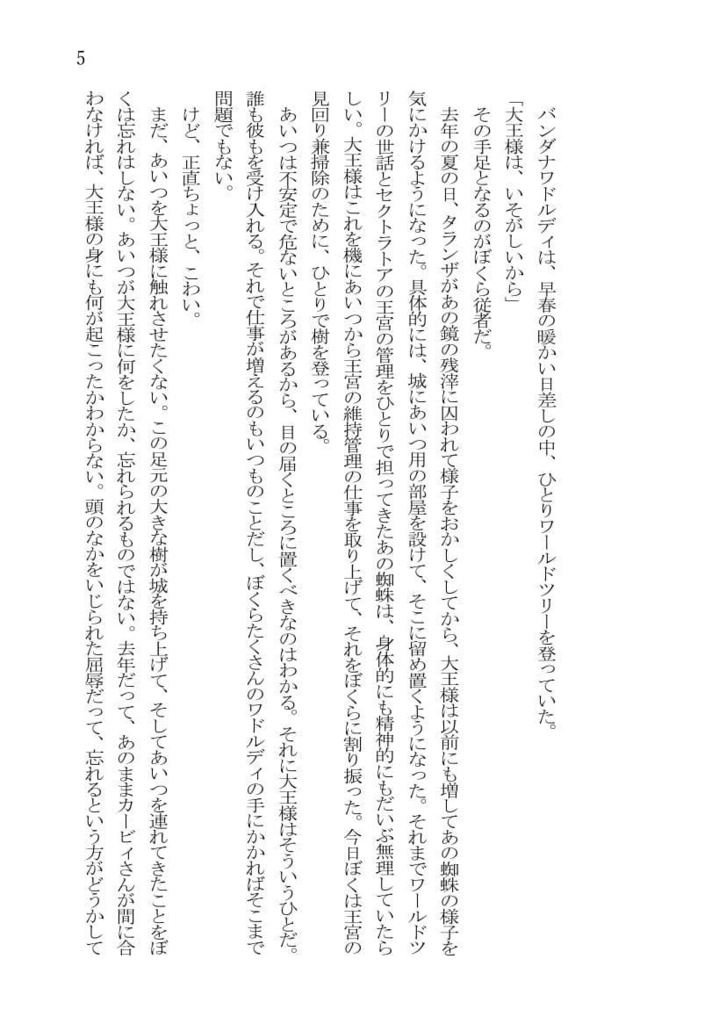 5
バンダナワドルディは、早春の暖かい日差しの中、ひとりワールドツリーを登っていた。
「大王様は、いそがしいから」
その手足となるのがぼくら従者だ。
去年の夏の日、タランザがあの鏡の残滓に囚われて様子をおかしくしてから、大王様は以前にも増してあの蜘蛛の様子を
気にかけるようになった。具体的には、城にあいつ用の部屋を設けて、そこに留め置くようになった。それまでワールドツ
リーの世話とセクトラトアの王宮の管理をひとりで担ってきたあの蜘蛛は、身体的にも精神的にもだいぶ無理していたら
しい。大王様はこれを機にあいつから王宮の維持管理の仕事を取り上げて、それをぼくらに割り振った。今日ぼくは王宮の
見回り兼掃除のために、ひとりで樹を登っている。
あいつは不安定で危ないところがあるから、目の届くところに置くべきなのはわかる。それに大王様はそういうひとだ。
誰も彼もを受け入れる。それで仕事が増えるのもいつものことだし、ぼくらたくさんのワドルディの手にかかればそこまで
問題でもない。
けど、正直ちょっと、こわい。
まだ、あいつを大王様に触れさせたくない。この足元の大きな樹が城を持ち上げて、そしてあいつを連れてきたことをぼ
くは忘れはしない。あいつが大王様に何をしたか、忘れられるものではない。去年だって、あのままカービィさんが間に合
わなければ、大王様の身にも何が起こったかわからない。頭のなかをいじられた屈辱だって、忘れるという方がどうかして